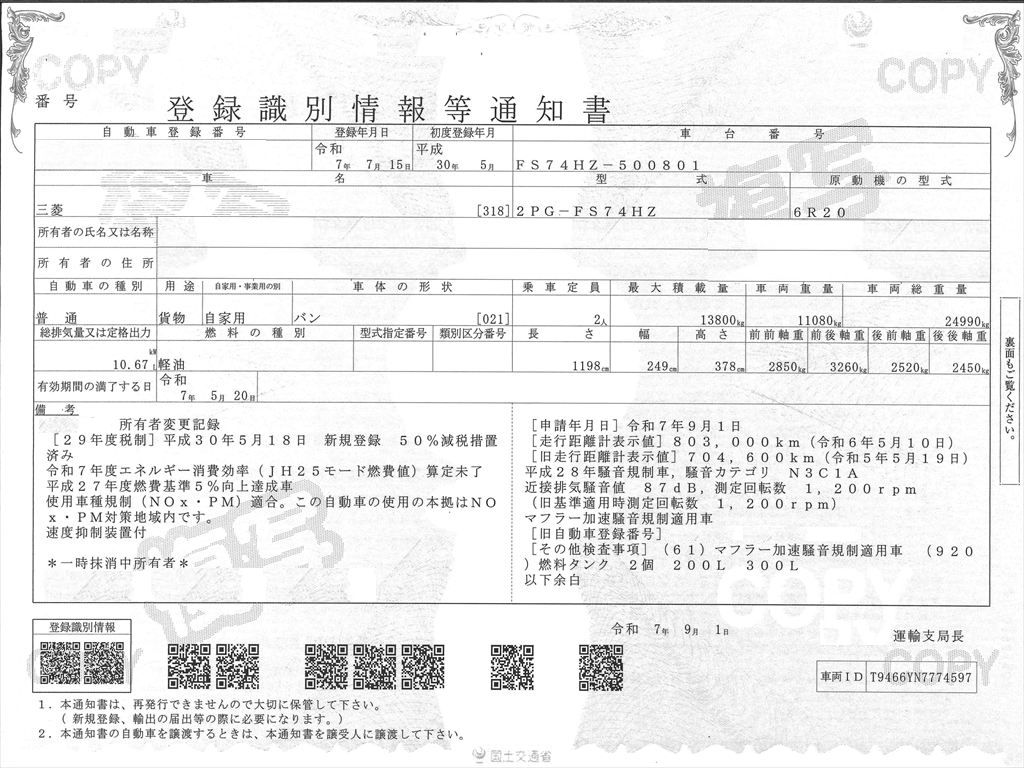 COPY
COPY
番号 登録識別情報等通知書
自動車登録番号 登録年月日 初度登録年月 車台番号
令和 7年 7月 15日 平成 30年 5月 FS74HZ-500801
車名 型式 原動機の型式
三菱 [318] 2PG-FS74HZ 6R20
所有者の氏名又は名称
所有者の住所
自動車の種別 用途 自家用・事業用の別 車体の形状 乗車定員 最大積載量 車両重量 車両総重量
普通 貨物 自家用 バン [021] 2人 13800kg 11080kg 24990kg
総排気量又は定格出力 燃料の種別 型式指定番号 類別区分番号 長さ 幅 高さ 前前軸重 前後軸重 後前軸重 後後軸重
kW
10.67 L 軽油 1198cm 249cm 378cm 2850kg 3260kg 2520kg 2450kg
有効期間の満了する日 令和 7年 5月 20日
備考
所有者変更記録
[29年度税制] 平成30年5月18日 新規登録 50%減税措置
済み
令和7年度エネルギー消費効率(JH25モード燃費値)算定未了
平成27年度燃費基準5%向上達成車
使用車種規制(NOx・PM)適合。この自動車の使用の本拠はNO
x・PM対策地域内です。
速度抑制装置付
*一時抹消中所有者*
[申請年月日] 令和7年9月1日
[走行距離計表示値] 803,000km(令和6年5月10日)
[旧走行距離計表示値] 704,600km(令和5年5月19日)
平成28年騒音規制車,騒音カテゴリ N3C1A
近接排気騒音値 87dB,測定回転数 1,200rpm
(旧基準適用時測定回転数 1,200rpm)
マフラー加速騒音規制適用車
[旧自動車登録番号]
[その他検査事項] (61)マフラー加速騒音規制適用車 (920
)燃料タンク 2個 200L 300L
以下余白
裏面もご覧ください。
複写
複写
COPY
COPY
COPY
令和 7年 9月 1日
運輸支局長
登録識別情報
車両ID T9466YN7774597
1.本通知書は、再発行できませんので大切に保管して下さい。
(新規登録、輸出の届出等の際に必要になります。)
2.本通知書の自動車を譲渡するときは、本通知書を譲受人に譲渡して下さい。
国土交通省